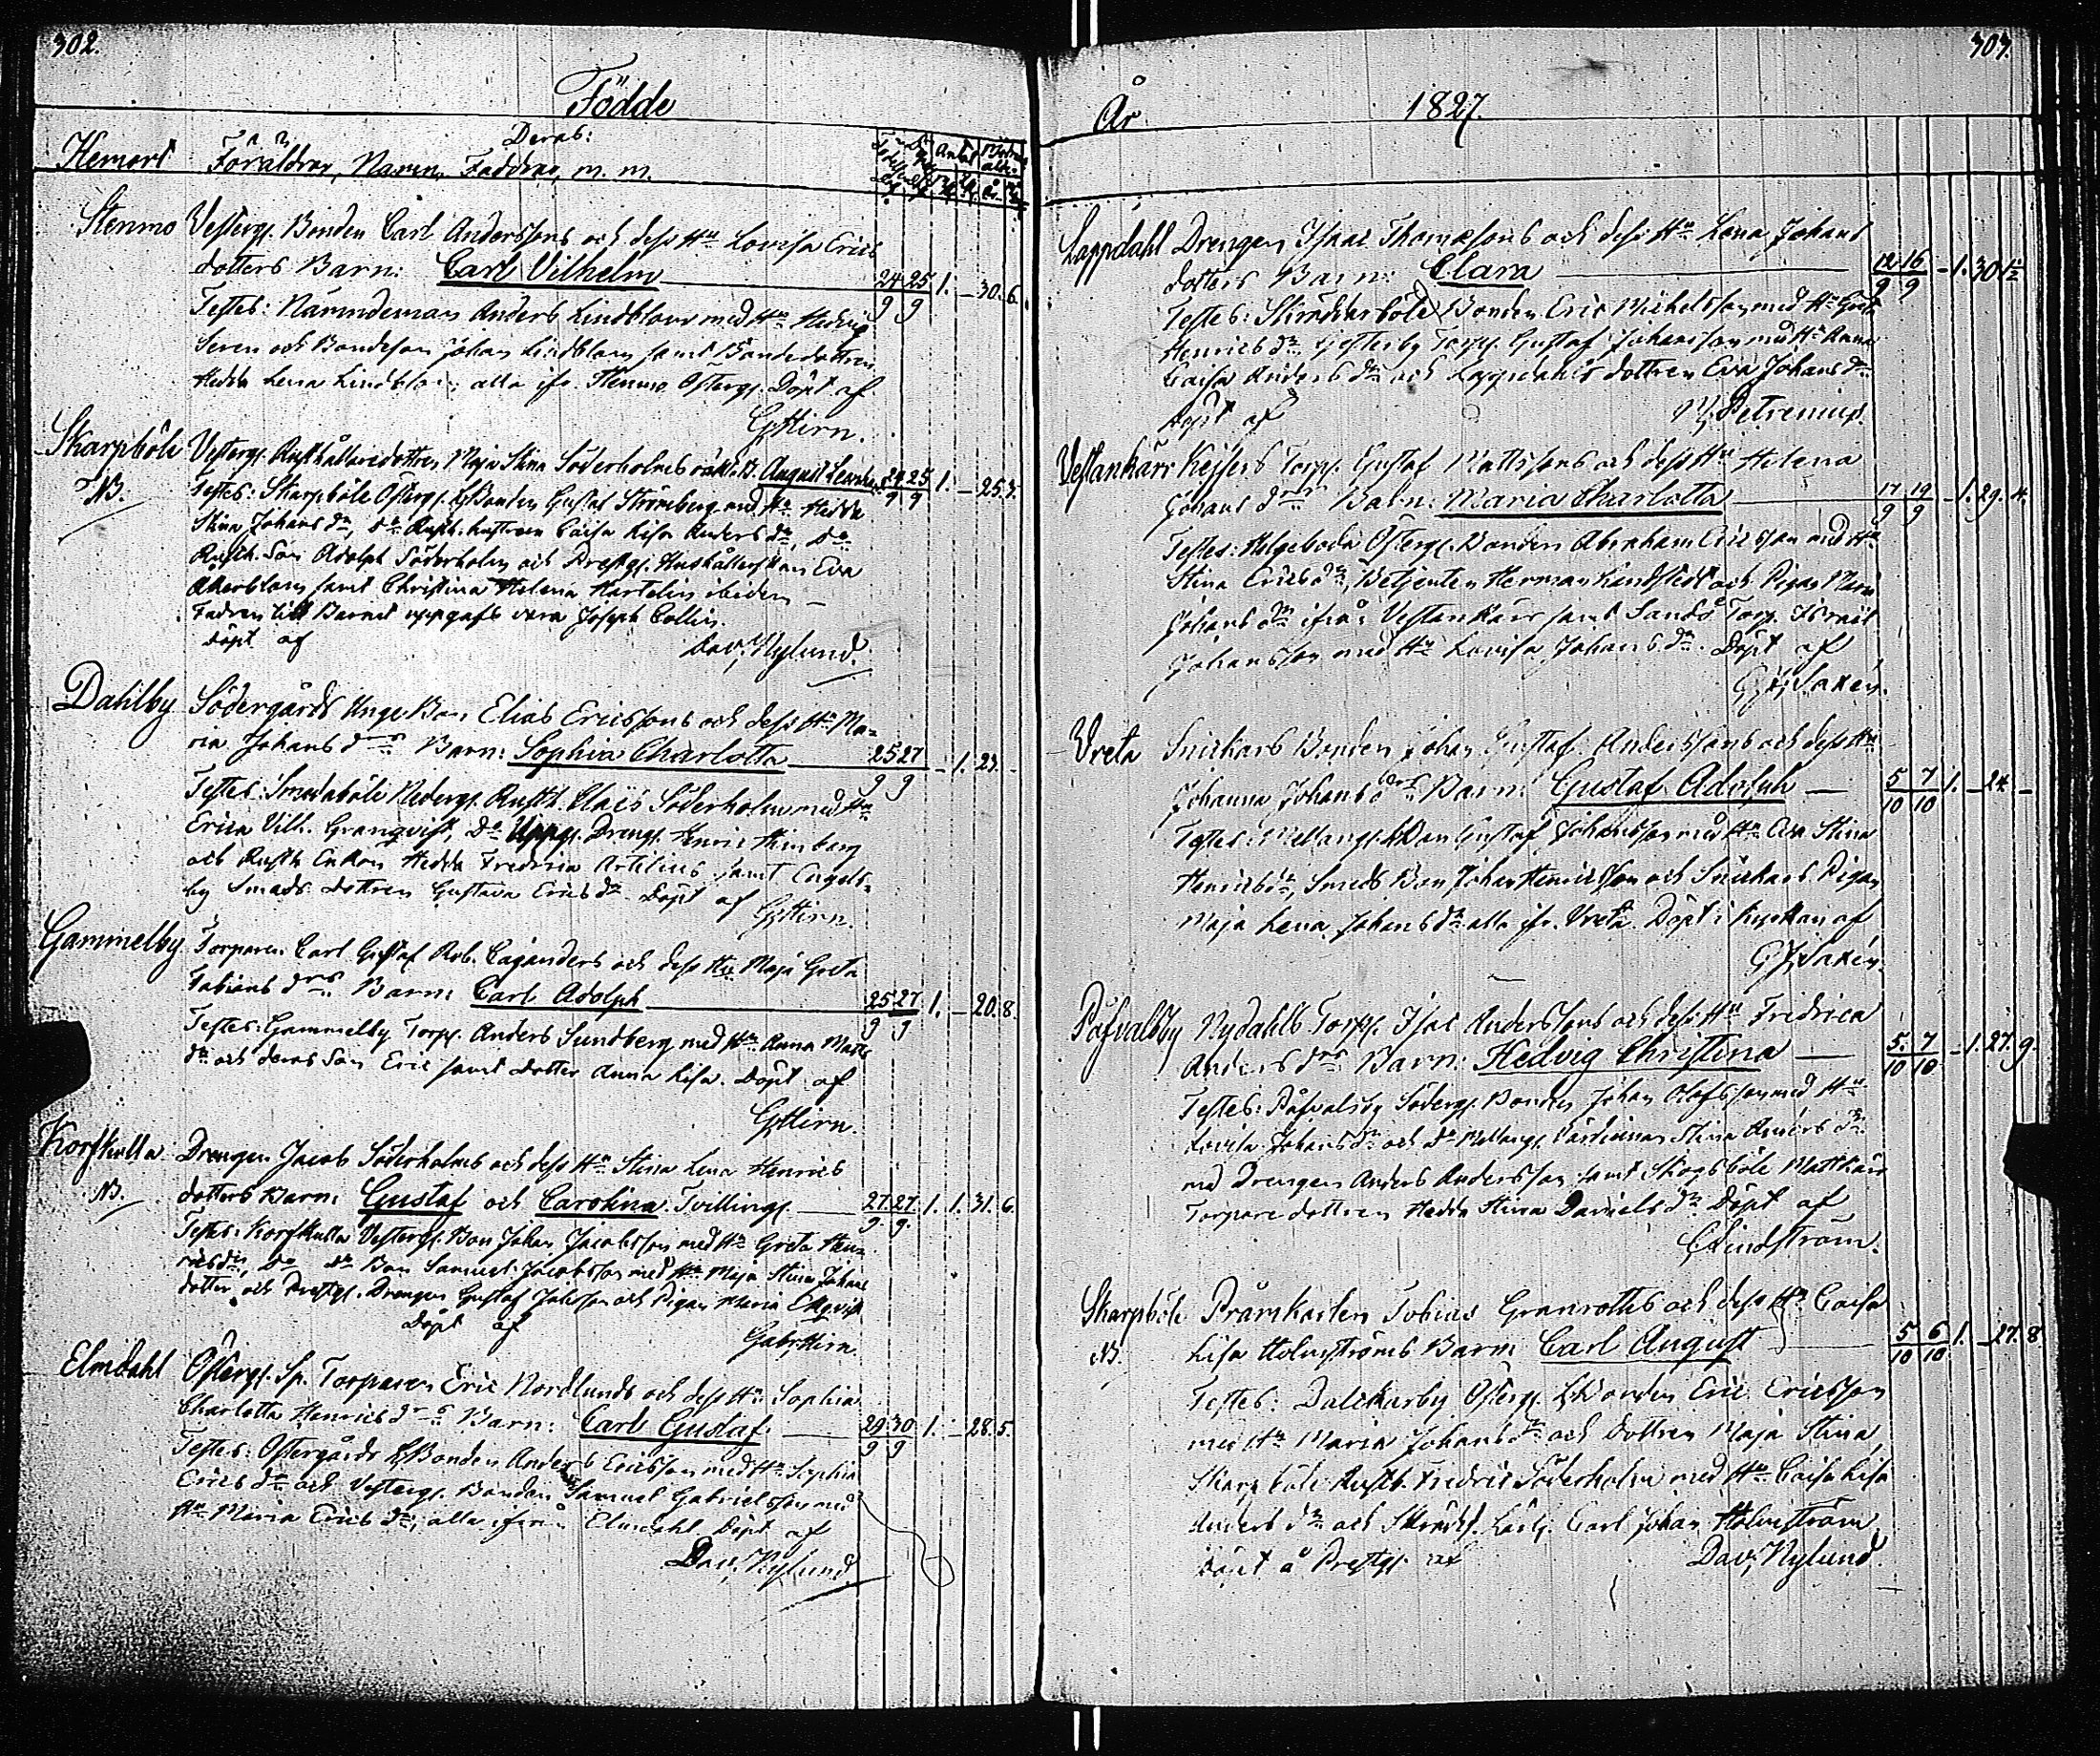 302.
Födde
Hemort Föräldrar, Namn, Faddrar, m. m.
Deras:
Stenmo Vesterg. Bonden Carl Anderssons och dess Hu Lovisa Erics
dotters Barn: Carl Vilhelm 24 25 1. — 30. 6.
9 9
Testes: Nämndeman Anders Lindblom med Hu Hedvig
Seren och Bondeson Johan Lindblom samt Bondedottren
Hedda Lena Lindblom, alla ifr. Stenmo Österg. Döpt af
G Hirn.
Skarpböle Vesterg. Rusthållaredottren Maja Stina Söderholms August 24 25 1. — 25.
NB. Testes: Skarpböle Österg. Bonden Gustaf Strömberg med Hu Hedda 9 9
Stina Johans dr, Do Rusth. hustrun Caisa Lisa Anders dr, Do
Rusth. Son Adolph Söderholm och Prestg. Hushållerskan Eva
Åkerblom samt Christina Helena Hartelin ibidem —
Fadren till Barnet uppgafs vara Joseph Collin.
Döpt af Dav. Nylund.
Dahlby Södergårds Unge Bon. Elias Ericssons och dess Hu Ma-
ria Johans drs Barn: Sophia Charlotta 25 27 — 1. 23. —
9 9
Testes: Smedsböle Nederg. Rusth. Claës Söderholm med Hu
Erica Vilh. Granqvist, Do Uppg. Dreng. Henric Himberg
och Rusth. Enkan Hedda Fredrica Artelius samt Engels-
by Smeds dottren Gustava Erics dr. Döpt af
G Hirn.
Gammelby Torparen Carl Gustaf Rob. Cajanders och dess Hu Maja Greta
Fabians drs Barn: Carl Adolph 25 27 1. — 20. 8.
9 9
Testes: Gammelby Torp. Anders Sundberg med Hu Anna Matts
dr och deras Son Eric samt dotter Anna Lisa. Döpt af
G Hirn.
Korskulla Drengen Jacob Söderholms och dess Hu Stina Lena Henrics
NB. dotters Barn: Gustaf och Carolina Tvilling. 27. 27. 1. 1. 31. 6.
9. 9.
Testes: Korskulla Vesterg. Bon Johan Jacobsson med Hu Greta Hen-
rics dr, Do Do Bon Samuel Jacobsson med Hu Maja Stina Johans
dotter och Prestg. Drengen Gustaf Johansson och Pigan Maria Ekqvist
Döpt af Gab. Hirn.
Elmdahl Österg. Sp. Torparen Eric Nordlunds och dess Hu Sophia
Charlotta Henrics drs Barn: Carl Gustaf 29 30 1. — 28. 5.
9 9
Testes: Östergårds Bonden Anders Ericsson med Hu Sophia
Erics dr och Vesterg. Bonden Samuel Gabrielsson med
Hu Maria Erics dr, alla ifrån Elmdahl Döpt af
Dav. Nylund.
303.
År 1827.
Lappdahl Drengen Isaac Thomæsons och dess Hu Lena Johans
dotters Barn: Clara 12 16 — 1. 30 1/2
9 9
Testes: Skinnarböle Bonden Eric Michelsson med Hu
Henrics dr Gesterby Torp. Gustaf Johansson med Hu Anna
Caisa Anders dr och Lappdahls dottren Eva Johans dr
Döpt af Petrenius.
Vestankärr Keisers Torp. Gustaf Mattssons och dess Hu Helena
Johans drs Barn: Maria Charlotta 17 19 — 1. 29. 4.
9 9
Testes: Helgeboda Österg. Bonden Abraham Ericsson med Hu
Stina Erics dr, Betjenten Herman Landstedt och Pigan Maria
Johans dr ifrån Vestankärr samt Sandö Torp. Israël
Johansson med Hu Lovisa Johans dr. Döpt af
G J Saxén.
Vreta Snickars Bonden Johan Gustaf Anderssons och dess Hu
Johanna Johans drs Barn: Gustaf Adolph — 5 7 1. — 24 —
10 10
Testes: Mellang. Bon Gustaf Johansson med Hu Eva Stina
Henrics dr, Smeds Bon Johan Henricsson och Snickars Pigan
Maja Lena Johans dr alla ifr. Vreta. Döpt i Kyrkan af
G J Saxén.
Påfvalsby Nydahls Torp. Isac Anderssons och dess Hu Fredrica
Anders drs Barn: Hedvig Christina — 5. 7 — 1. 27. 9.
10 10
Testes: Påfvalsby Söderg. Bonden Johan Olofsson med Hu
Lovisa Johans dr och Do Mellang. Stina Anders dr
med Drengen Anders Andersson samt Skogsböle Mattkärr
Torpare dottren Hedda Stina Daniels dr Döpt af
C Lindström.
Skarpböle Pråmkarlen Tobias Granroths och dess Hu Caisa
NB. Lisa Holmströms Barn Carl August 5 6 1. — 27. 8
10 10
Testes: Dalkarby Österg. Bonden Eric Ericsson
med Hu Maria Johans dr och dottren Maja Stina,
Skarpböle Rusth. Fredric Söderholm med Hu Caisa Lisa
Anders dr och Skrädd. Lärlg. Carl Johan Holmström
Döpt å Prestg. af Dav. Nylund.